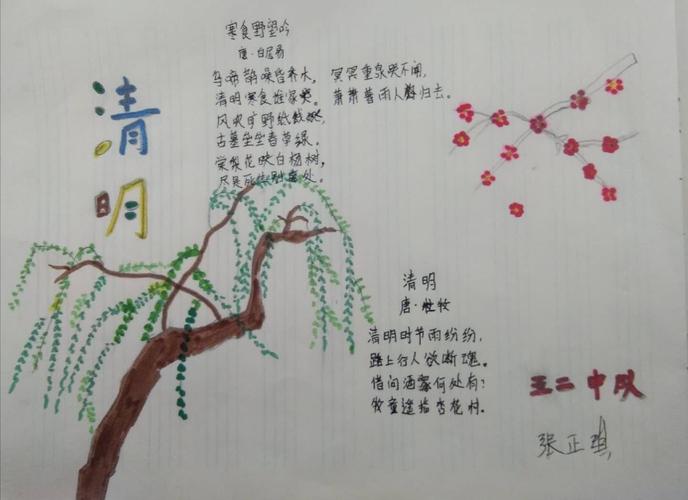 清明
寒食野望吟
唐·白居易
乌啼鹊噪昏乔木，
清明寒食谁家哭。
风吹旷野纸钱飞，
古墓垒垒春草绿。
棠梨花映白杨树，
尽是死生别离处。
冥冥重泉哭不闻，
萧萧暮雨人归去。
清明
唐·杜牧
清明时节雨纷纷，
路上行人欲断魂。
借问酒家何处有？
牧童遥指杏花村。
五二中队
张正